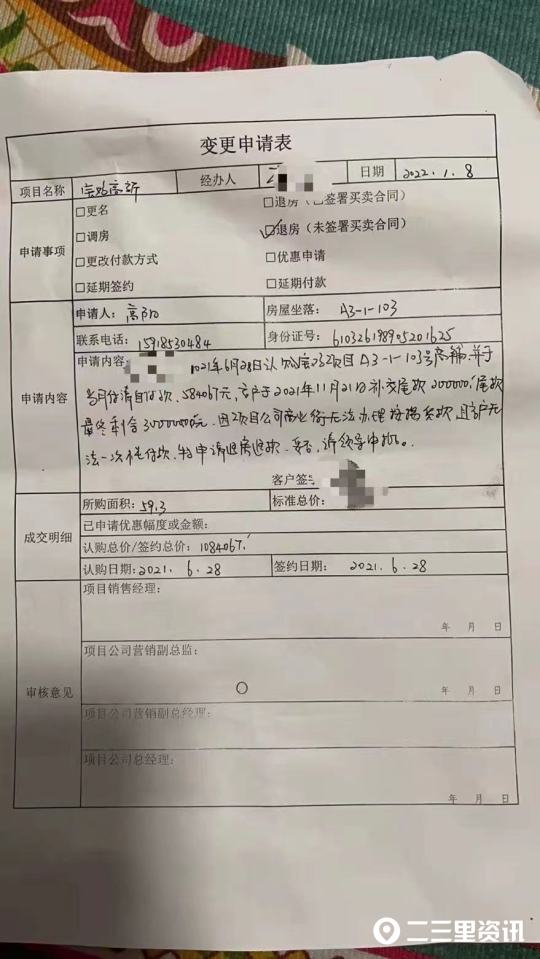 变更申请表
项目名称 宝鸡高新 经办人 日期 2022.1.8
申请事项
□更名 □退房（已签署买卖合同）
□调房 ☑退房（未签署买卖合同）
□更改付款方式 □优惠申请
□延期签约 □延期付款
申请内容
申请人：高阳 房屋坐落： A3-1-103
联系电话：15918530484 身份证号：610326198905201625
申请内容： 2021年6月28日认购 项目A3-1-103号商铺，并于
当月付清首付款.584067元，客户于2021年11月21日补交尾款200000，尾款
最终剩余300000元.因项目公司商业街无法办理按揭贷款且客户无
法一次性付款.特申请退房退款.妥否，请领导审批。
客户签
成交明细
所购面积：59.3 标准总价：
已申请优惠幅度或金额：
认购总价/签约总价：1084067.
认购日期：2021.6.28 签约日期：2021.6.28
审核意见
项目销售经理：
年 月 日
项目公司营销副总监：
项目公司营销副总经理：
项目公司总经理：
年 月 日
二三里资讯